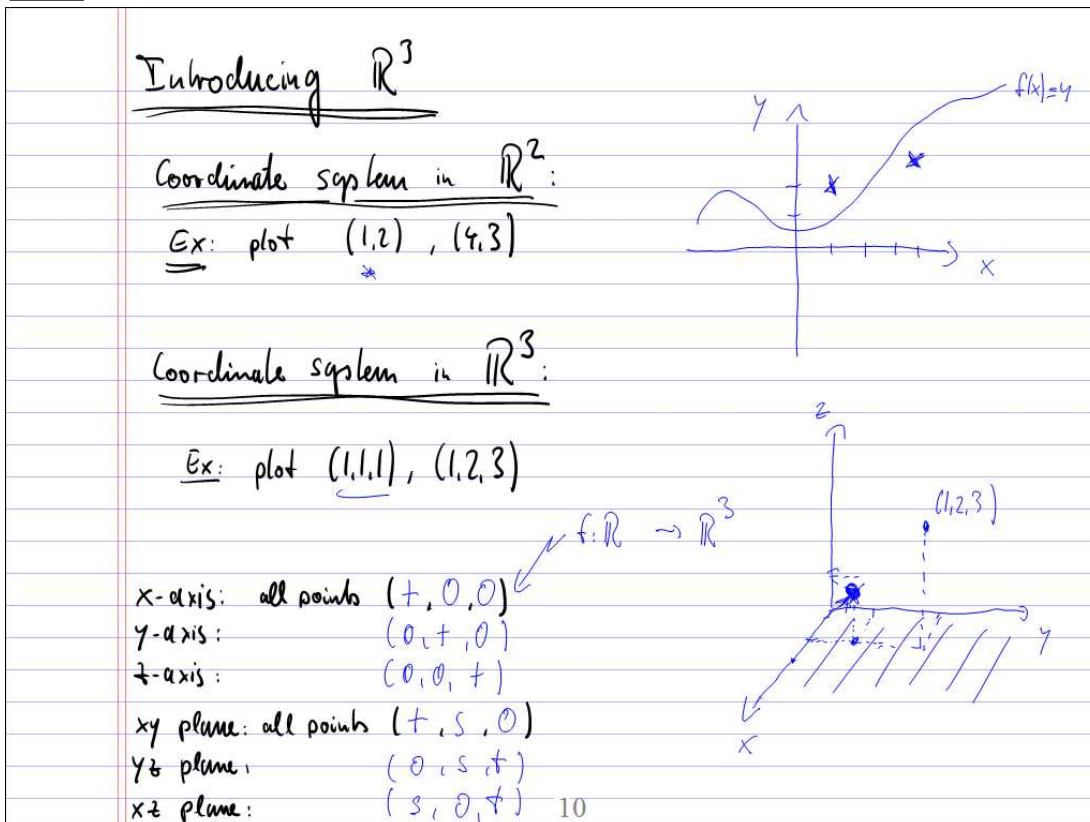 Introducing ℝ³
Coordinate system in ℝ²:
Ex: plot (1,2) , (4,3)
y
f(x)=y
x
Coordinate system in ℝ³:
Ex: plot (1,1,1), (1,2,3)
z
(1,2,3)
y
x
f: ℝ → ℝ³
x-axis: all points (t, 0, 0)
y-axis: (0, t, 0)
z-axis: (0, 0, t)
xy plane: all points (t, s, 0)
yz plane: (0, s, t)
xz plane: (s, 0, t)
10